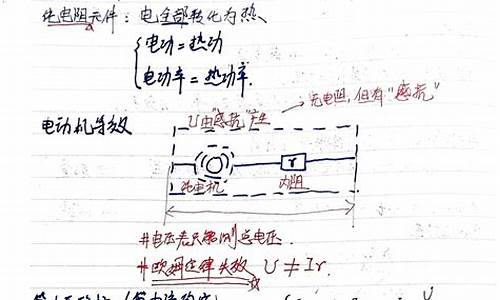 纯电阻元件：电全部转化为热、
电功=热功
电功率=热功率.
无电阻,但有"感抗"
U由"感抗"产生
电动机等效
r
纯电机
内阻
#电压表只能测总电压.
#欧姆定律失效 U≠Ir.